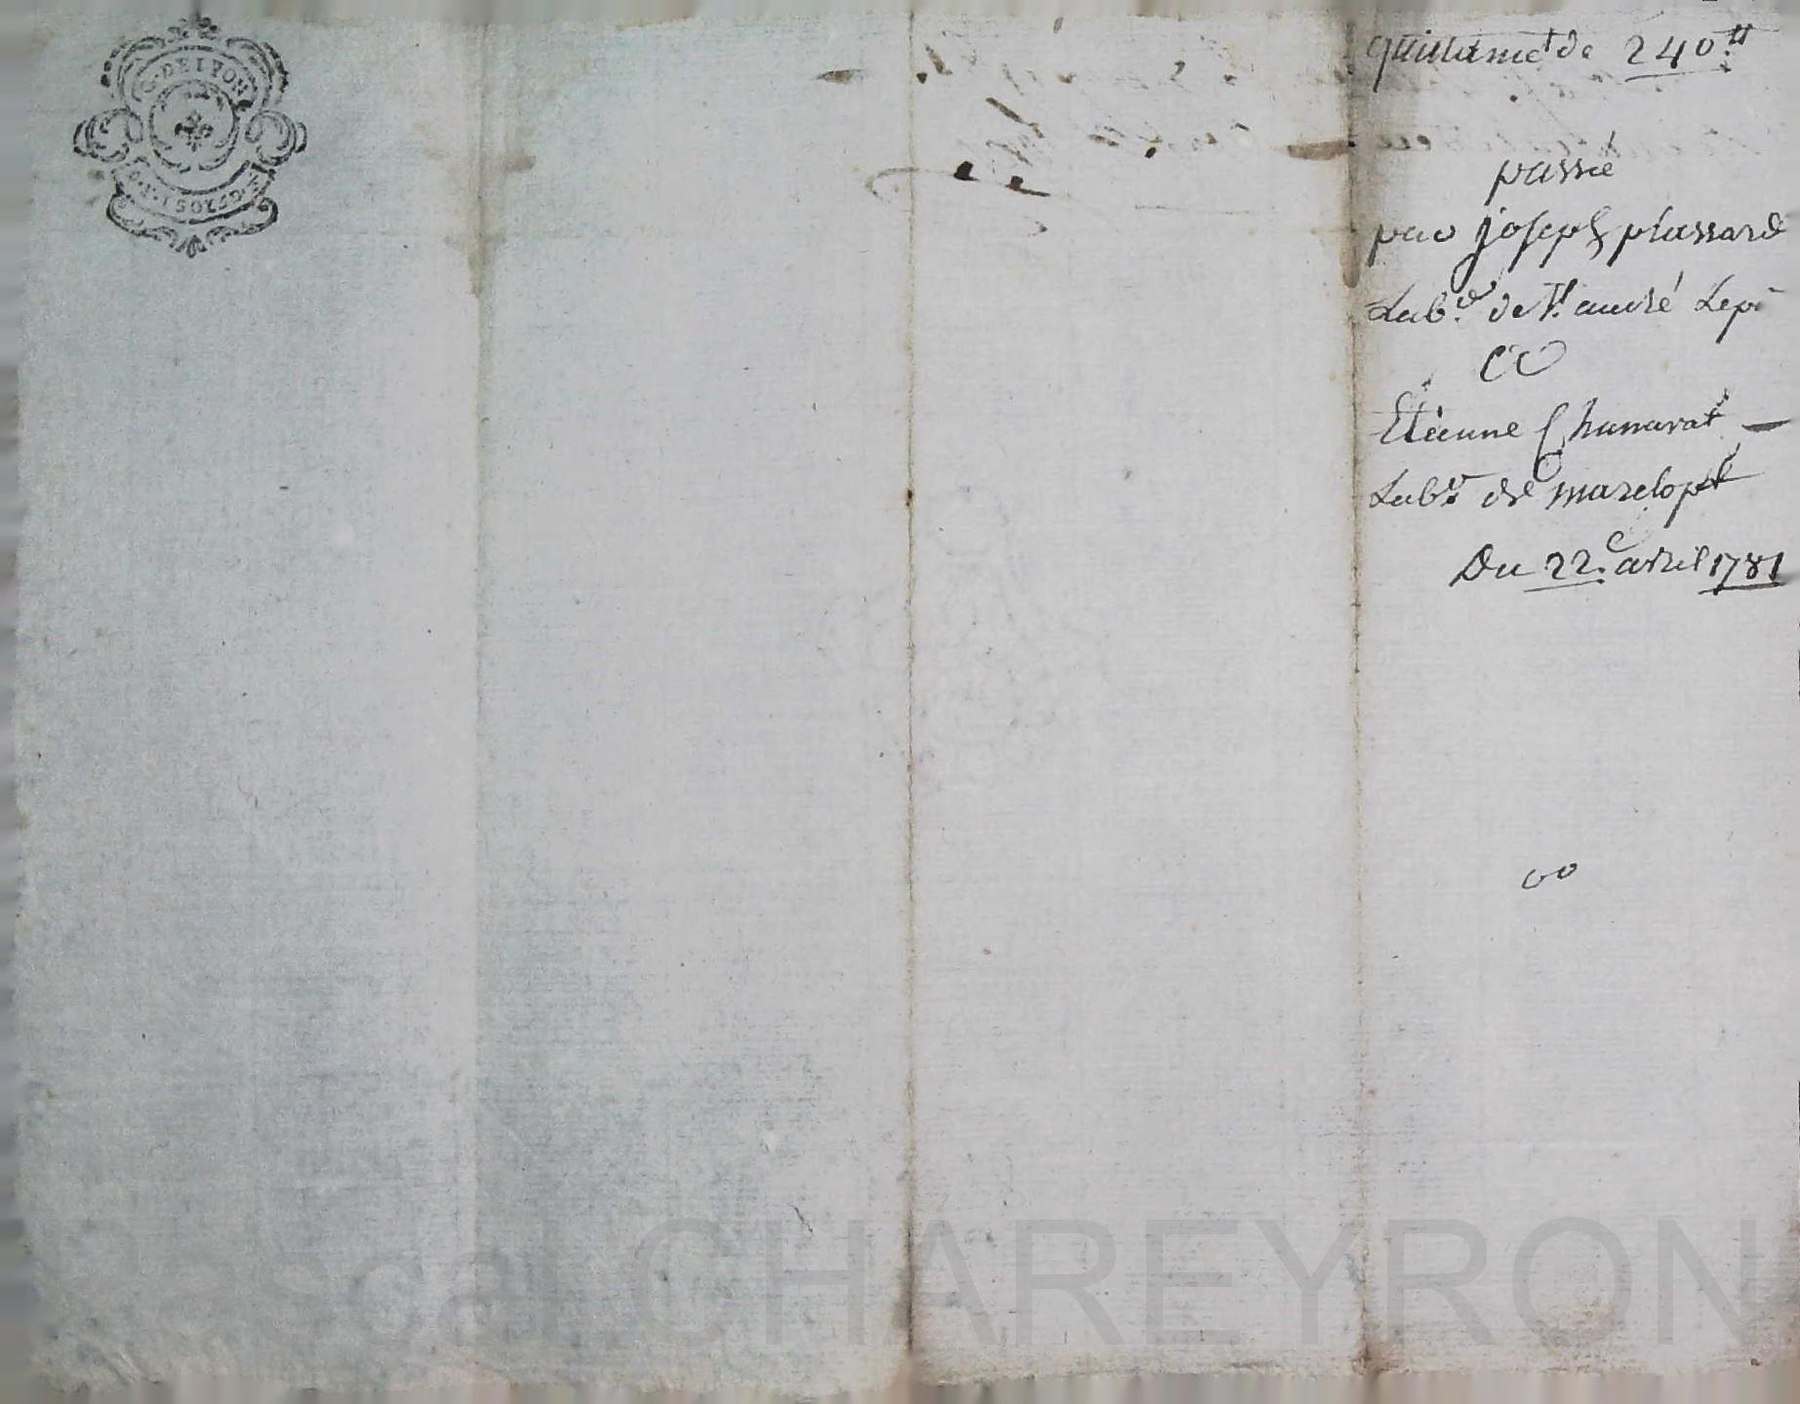 G. DE LYON
quittance de 240.tt
passée
par joseph plassard
Lab.r de St. andré
Etienne Chanavat
Lab.r de
Du 22.e avril 1781
Pascal CHAREYRON